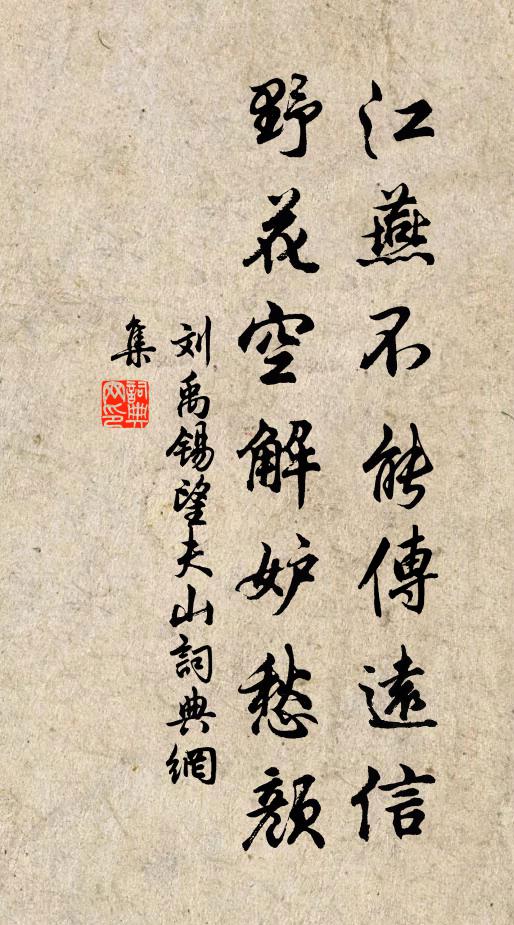 江燕不能傳遠信
野花空解妒愁顏
刘禹锡望夫山詞典網
集
詞典網印